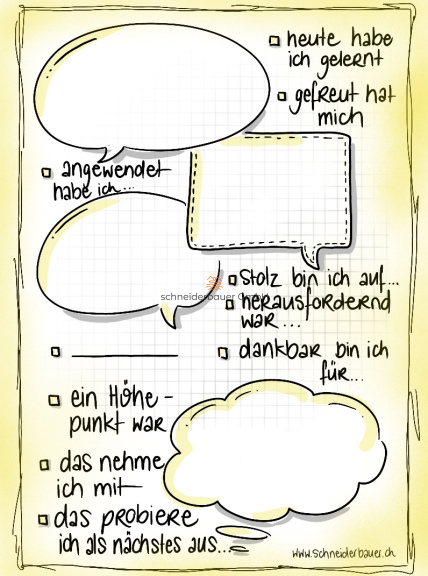 heute habe
ich gelernt
gefreut hat
mich
angewendet
habe ich...
stolz bin ich auf...
schneiderbauer GmbH
herausfordernd
war...
dankbar bin ich
für...
ein Höhe-
punkt war
das nehme
ich mit
das probiere
ich als nächstes aus...
www.schneiderbauer.ch